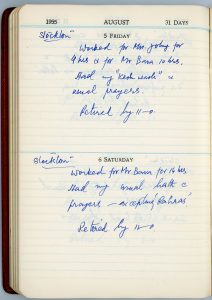 1955 AUGUST 31 DAYS
5 FRIDAY
Stockton"
Worked for Mr. John for
9 hrs & for Mr Bawn 10 hrs.
Had my "Kesh wash" &
usual prayers.
Retired by 11-0.
6 SATURDAY
Stockton"
Worked for Mr Bawn for 10 hrs.
Had my usual bath &
prayers – excepting Rahras'
Retired by 12-0.